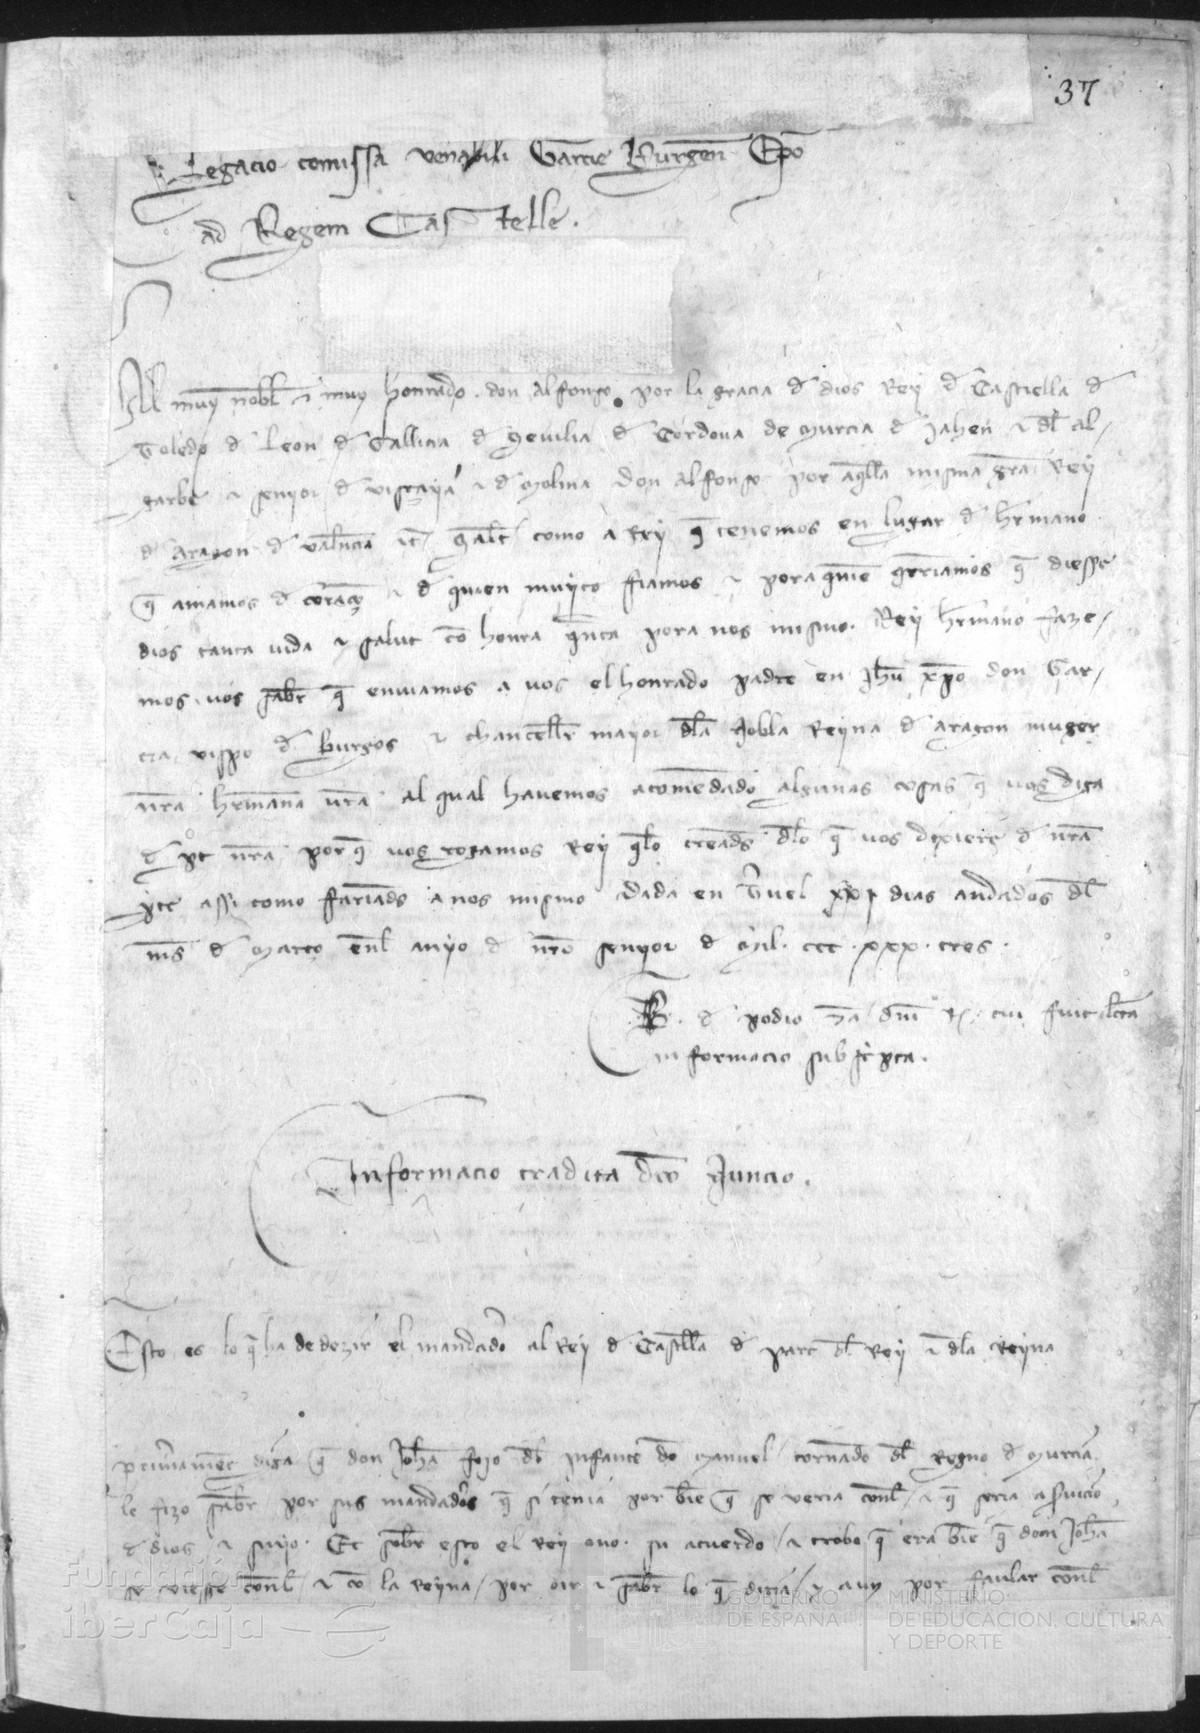 37
Legacio comissa venabili Garcie Burgen Epo
ad Regem Castelle.
Al muy nobl τ muy honrado don Alfonso por la gracia d dios Rey d Castiella d
Toledo d Leon d Gallicia d Sevilia d Cordova de Murcia d Jahen τ dl Al-
garbe τ senyor d viscaya τ d Molina Don Alfonso por aqlla misma gra Rey
d Aragon d valncia etc salt como a Rey q tenemos en lugar d hrmano
q amamos d coraço τ d quien muyto fiamos τ pora quie qrriamos q diesse
dios tanta vida τ salut co honra qnta pora nos mismo. Rey hrmano faze-
mos vos sabr q enviamos a vos el honrado padre en Jhu xpo don Gar-
cia vispo d Burgos τ chancellr mayor dla nobla Reyna d aragon muger
nra hrmana vra al qual havemos acomendado algunas cosas q vos diga
d pt nra porq vos rogamos Rey qlo creads dlo q vos dixiere d nra
pte assi como fariads a nos mismo dada en Truel xxi dias andados dl
mes d Março enl anyo d nro senyor d Mil. ccc. xxx. tres.
B. d podio dni R. cui fuit lcta
informacio subscpta.
Informacio tradita dco Nuncio.
Esto es lo q ha de dezir el mandadro al Rey d Castlla d part dl Rey τ dla Reyna
primamet diga q don Joha fijo dl Infante do Manuel tornado dl Regno d Murcia
le fizo sabr por sus mandadros q si tenia por bie q se veria conl τ q seria a svicio
d dios τ suyo. Et sobr esto el Rey ovo su acuerdo τ trobo q era bie q don Joha
se viesse conl τ co la Reyna por oir τ sabr lo q diria τ aun por favlar conl
Fundación
iberCaja
GOBIERNO
DE ESPAÑA
MINISTERIO
DE EDUCACIÓN, CULTURA
Y DEPORTE